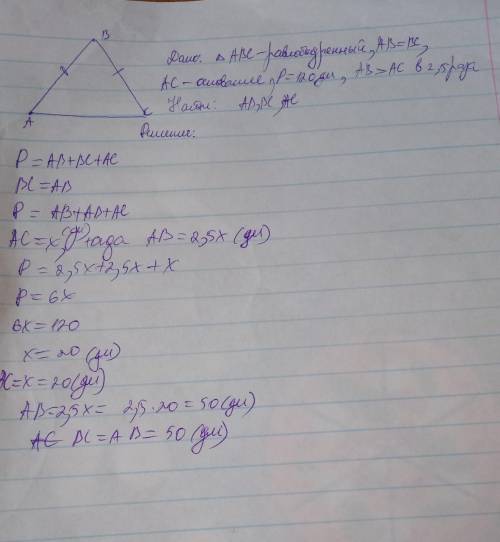 B
A
C
Дано: △ ABC - равнобедренный, AB = BC,
AC - основание, P = 120 дм, AB > AC в 2,5 раза
Найти: AB, BC, AC
Решение:
P = AB + BC + AC
BC = AB
P = AB + AB + AC
AC = x (дм) тогда AB = 2,5x (дм)
P = 2,5x + 2,5x + x
P = 6x
6x = 120
x = 20 (дм)
AC = x = 20 (дм)
AB = 2,5x = 2,5 · 20 = 50 (дм)
BC = AB = 50 (дм)